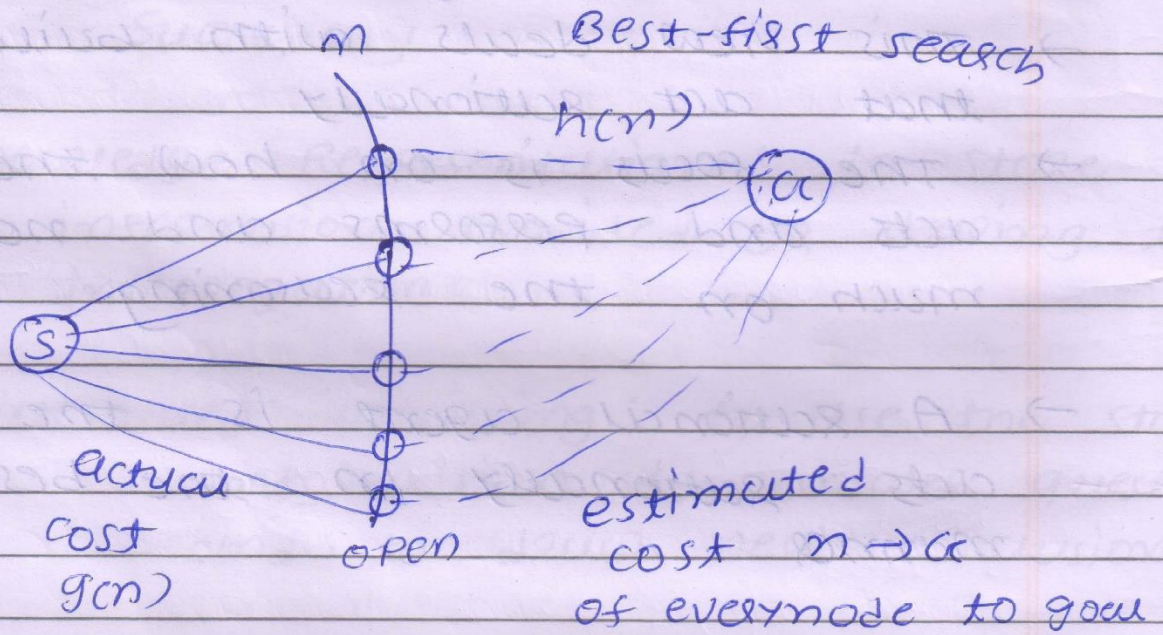 n
Best-first search
h(n)
G
S
actual
cost
g(n)
open
estimated
cost n→G
of everynode to goal